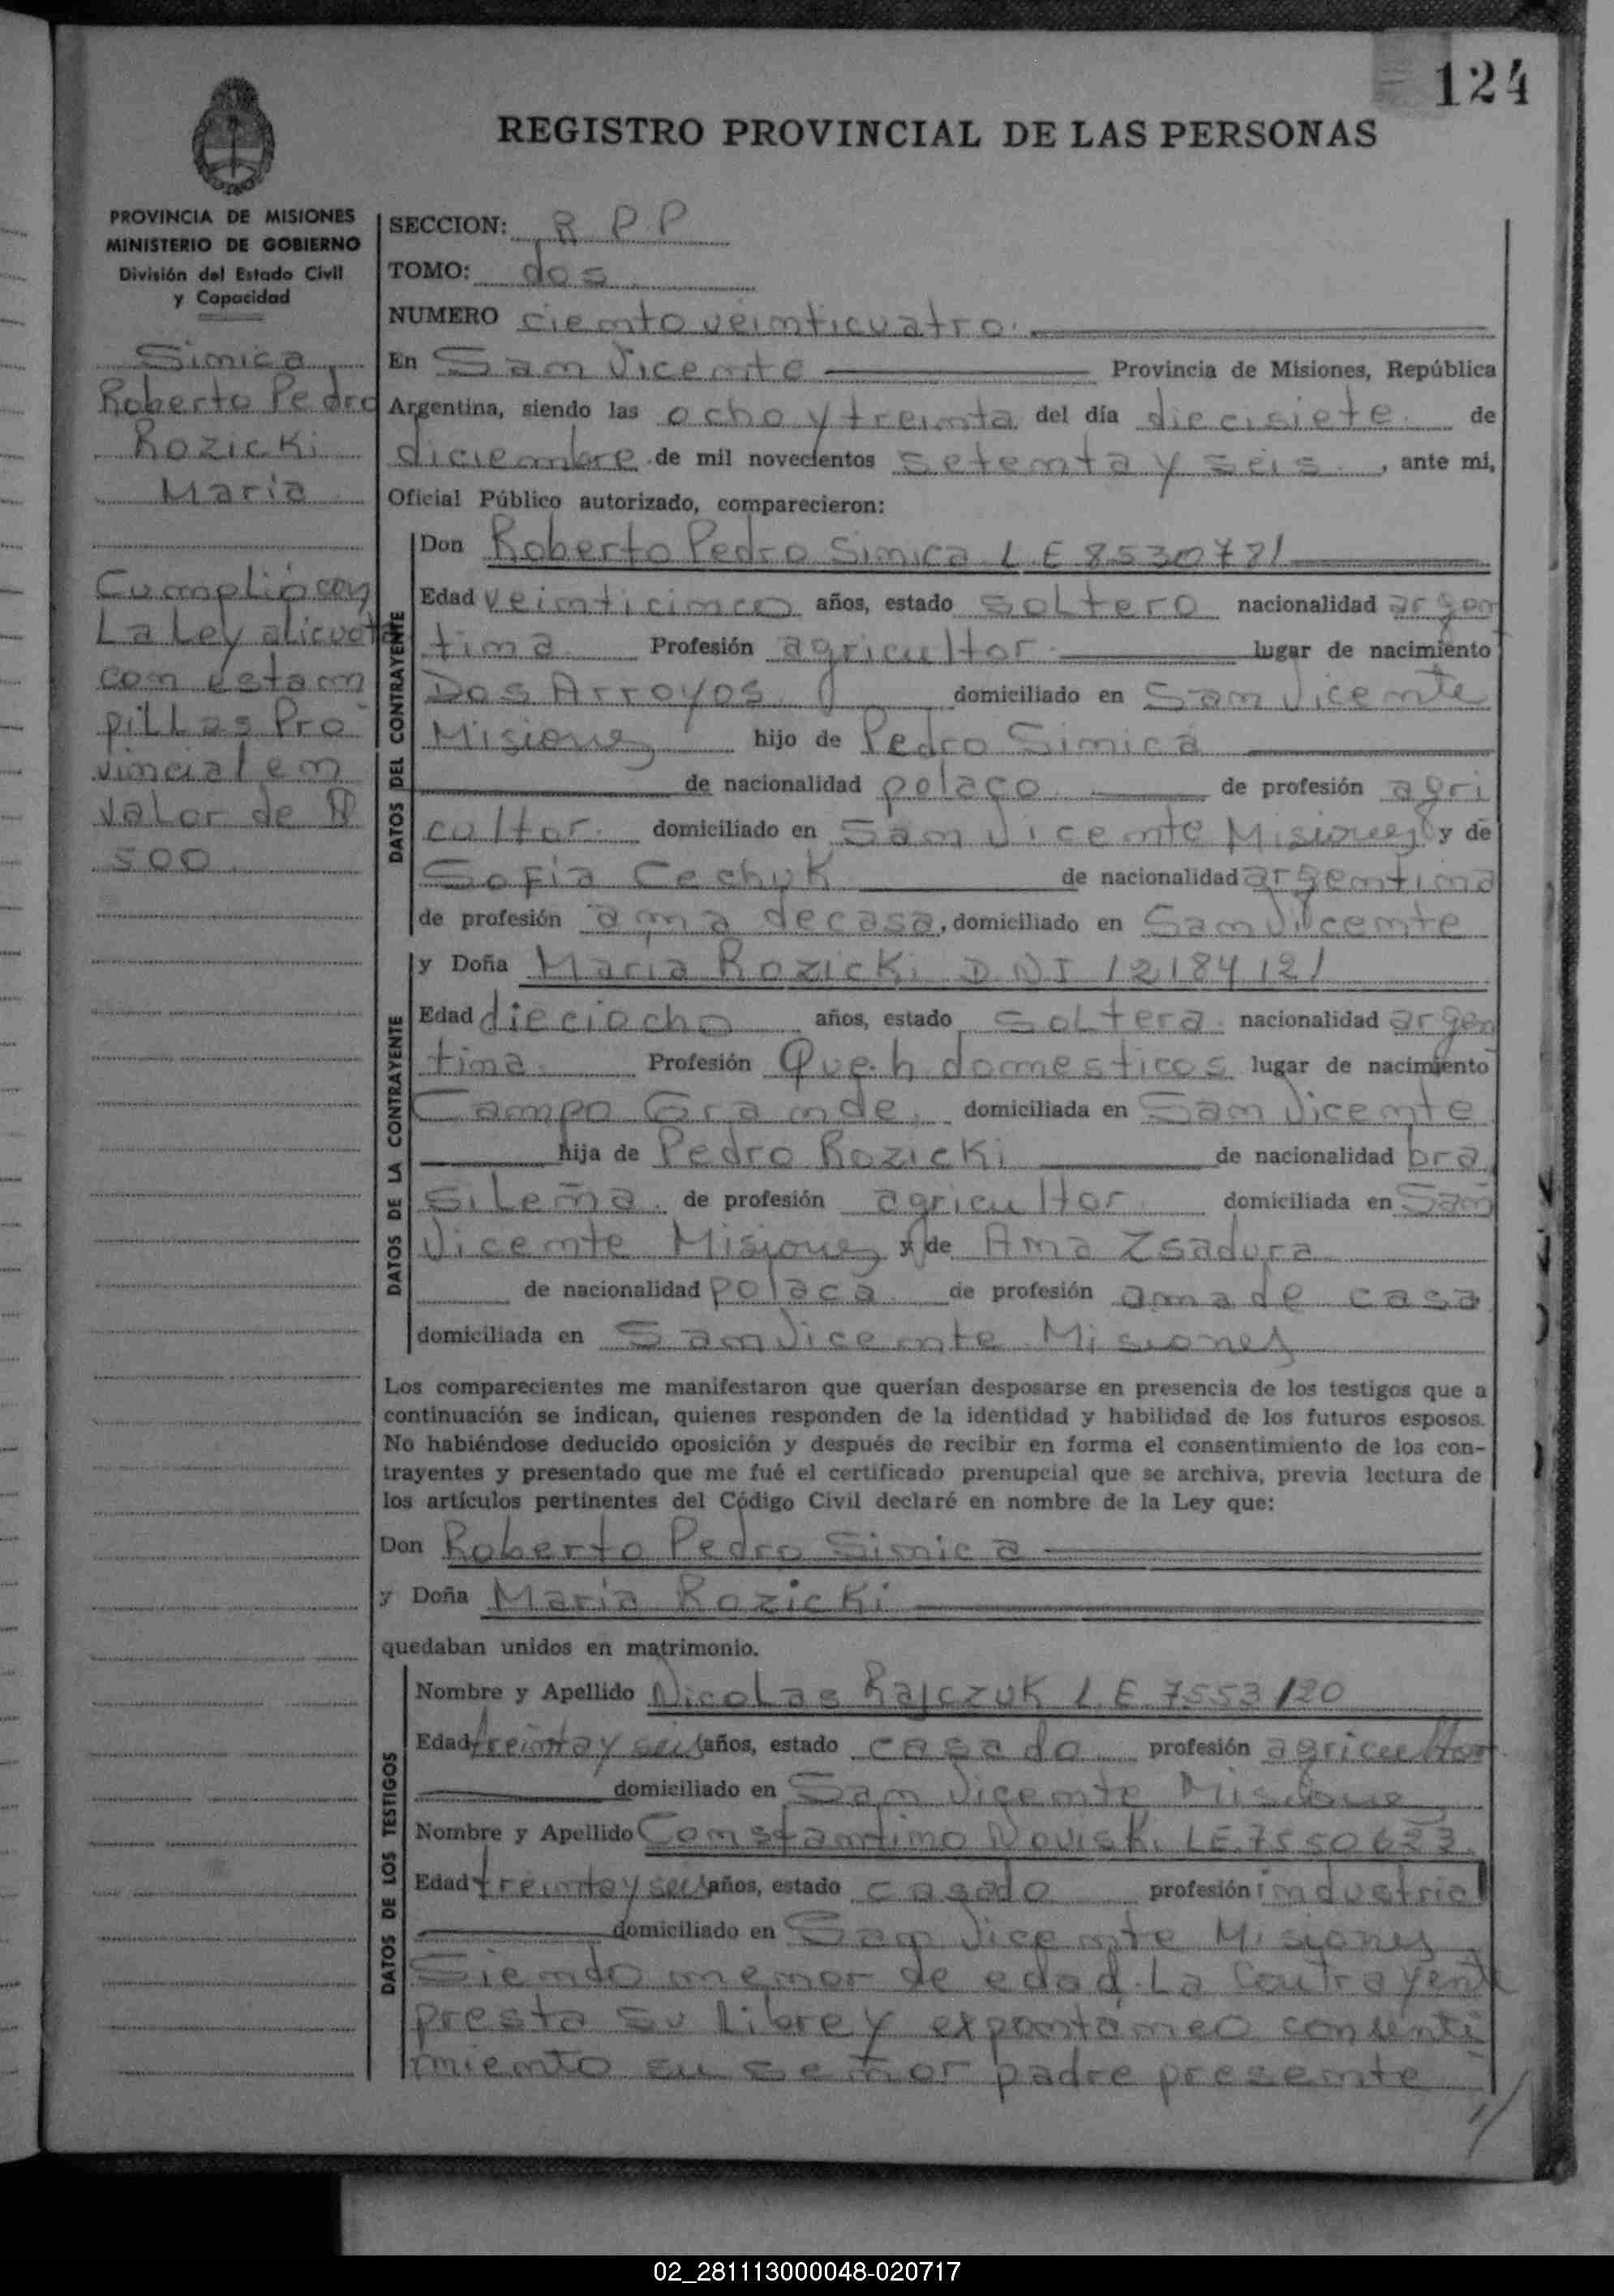 124
REGISTRO PROVINCIAL DE LAS PERSONAS
PROVINCIA DE MISIONES
MINISTERIO DE GOBIERNO
División del Estado Civil
y Capacidad
Simica
Roberto Pedro
Rozicki
Maria
Cumplió con
La Ley alicuota
con estam
pillas Pro
vincial en
valor de $
500
SECCION: R P P
TOMO: dos
NUMERO ciento veinticuatro
En San Vicente Provincia de Misiones, República
Argentina, siendo las ocho y treinta del día diecisiete de
diciembre de mil novecientos setenta y seis, ante mi,
Oficial Público autorizado, comparecieron:
DATOS DEL CONTRAYENTE
Don Roberto Pedro Simica L E 8530781
Edad veinticinco años, estado soltero nacionalidad argen
tina Profesión agricultor lugar de nacimiento
Dos Arroyos domiciliado en San Vicente
Misiones hijo de Pedro Simica
de nacionalidad polaco de profesión agri
cultor domiciliado en San Vicente Misiones y de
Sofia Cechuk de nacionalidad argentina
de profesión ama de casa, domiciliado en San Vicente
DATOS DE LA CONTRAYENTE
y Doña Maria Rozicki D N I 12184121
Edad dieciocho años, estado soltera nacionalidad argen
tina Profesión Queh domesticos lugar de nacimiento
Campo Grande domiciliada en San Vicente
hija de Pedro Rozicki de nacionalidad bra
sileña de profesión agricultor domiciliada en San
Vicente Misiones y de Ana Zsadura
de nacionalidad polaca de profesión ama de casa
domiciliada en San Vicente Misiones
Los comparecientes me manifestaron que querían desposarse en presencia de los testigos que a
continuación se indican, quienes responden de la identidad y habilidad de los futuros esposos.
No habiéndose deducido oposición y después de recibir en forma el consentimiento de los con-
trayentes y presentado que me fué el certificado prenupcial que se archiva, previa lectura de
los artículos pertinentes del Código Civil declaré en nombre de la Ley que:
Don Roberto Pedro Simica
y Doña Maria Rozicki
quedaban unidos en matrimonio.
DATOS DE LOS TESTIGOS
Nombre y Apellido Nicolas Rajczuk L E 7553120
Edad treinta y seis años, estado casado profesión agricultor
domiciliado en San Vicente Misiones
Nombre y Apellido Constantino Noviski L E 7550623
Edad treinta y seis años, estado casado profesión industrial
domiciliado en San Vicente Misiones
Siendo menor de edad La Contrayente
presta su Libre y expontaneo consenti
miento su señor padre presente
02_281113000048-020717